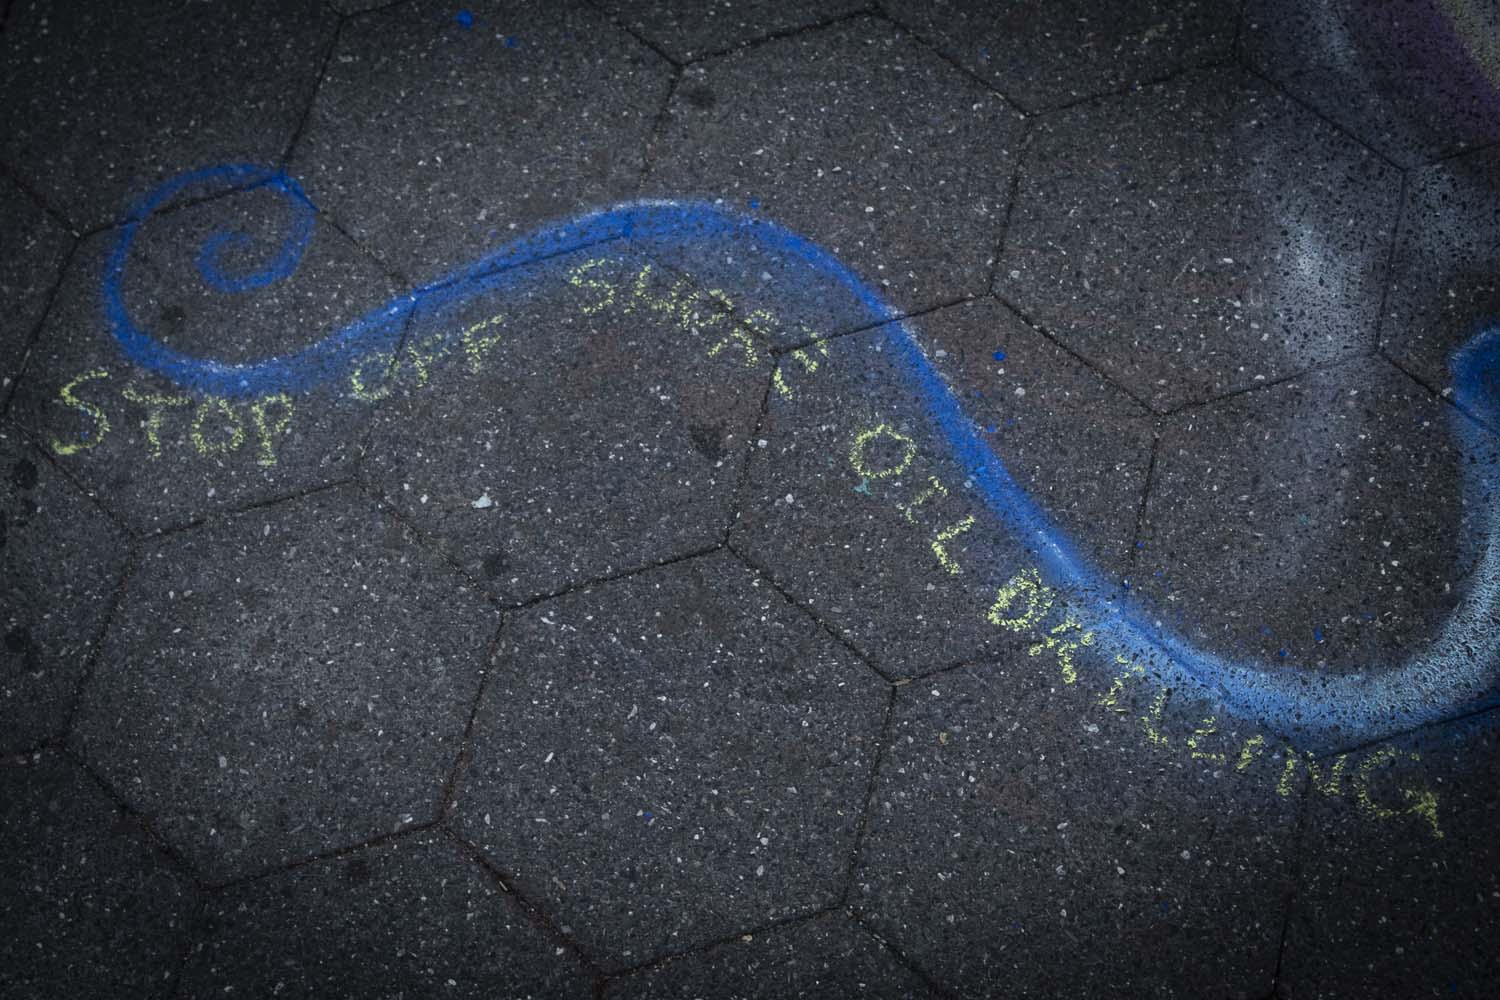 STOP OFF SHORE OIL DRILLING